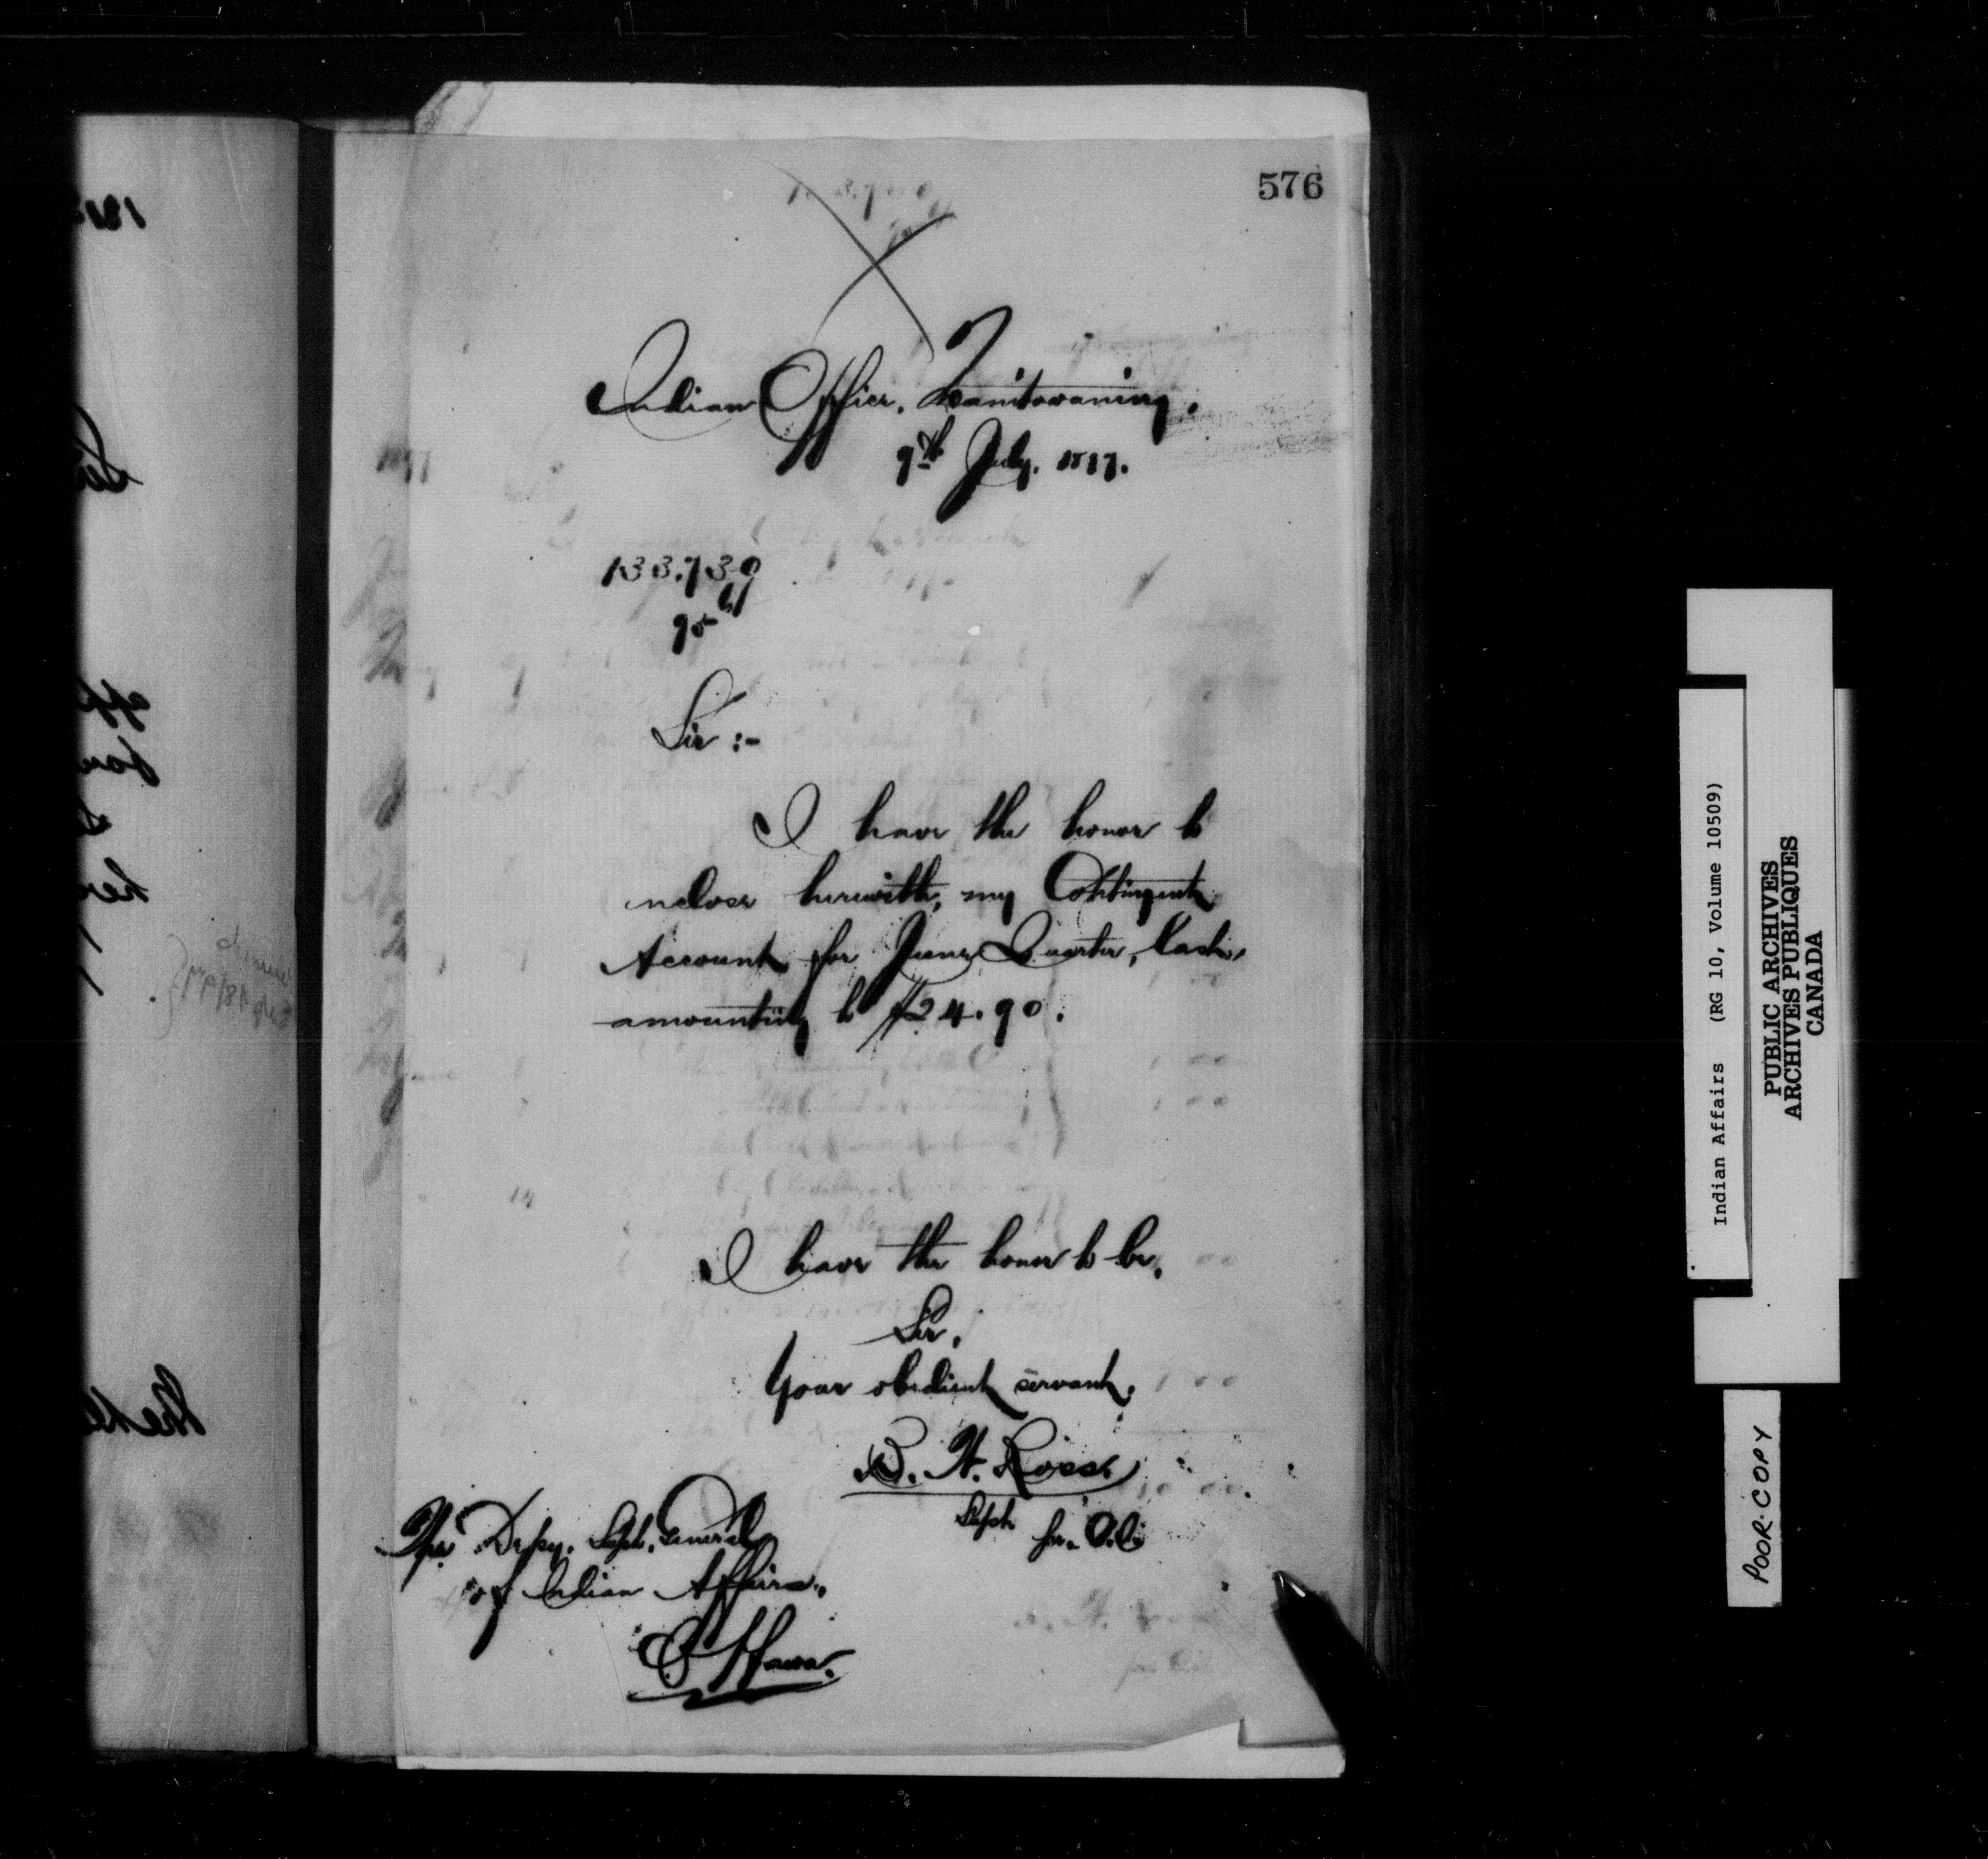 576
Indian Office. Manitowaning.
9th July. 1897.
133.730
95
Sir :-
I have the honor to
inclose herewith, my Contingent
Account for June Quarter,
amounting to $24.90.
I have the honor to be,
Sir,
Your obedient servant,
B. W. Ross
Supt.
The Depy. Supt. General
of Indian Affairs.
Ottawa.
Indian Affairs (RG 10, Volume 10509)
PUBLIC ARCHIVES
ARCHIVES PUBLIQUES
CANADA
POOR COPY